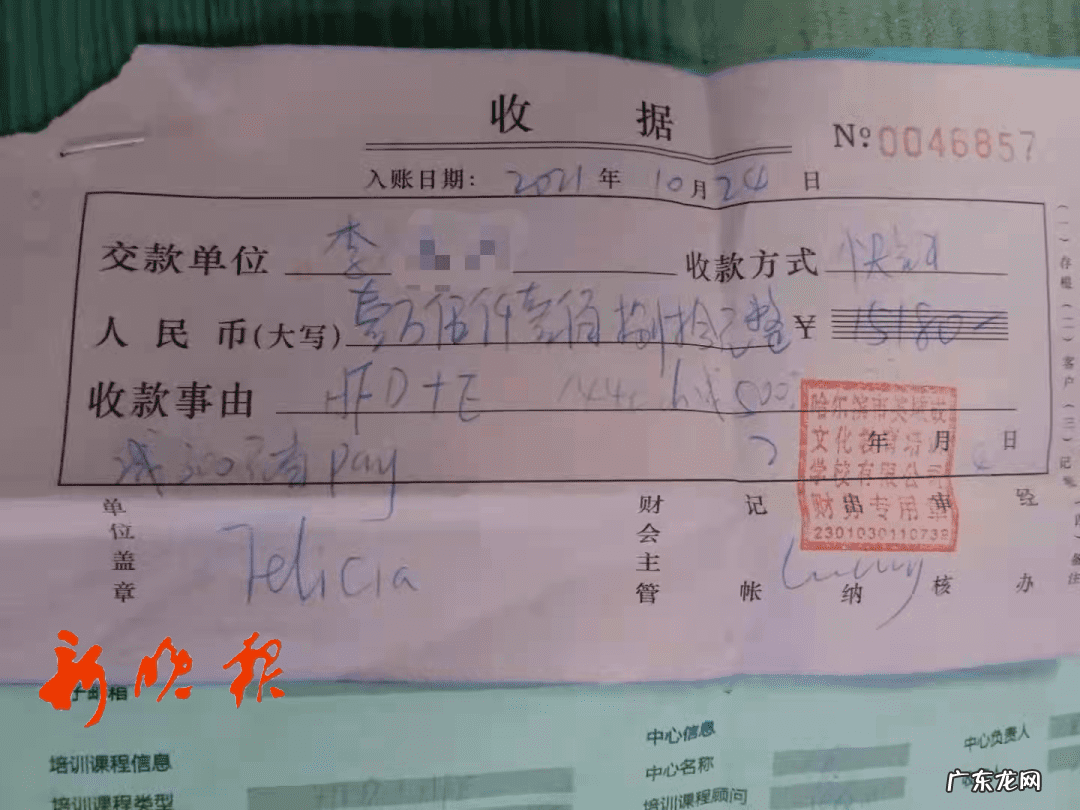 收 据 Nº 0046857
入账日期: 2021 年 10 月 24 日
交款单位 李 收款方式 快钱
人民币(大写) 壹万伍仟壹佰捌拾元整 ¥ 15180
收款事由 HFD+E
年 月 日
pay
单位盖章 财会主管 记帐 出纳 审核 经办
Felicia
哈尔滨市
文化教育培训
学校有限公司
财务专用章
2301030110739
(一)存根(二)客户(三)记帐
新晚报
子邮箱
培训课程信息 中心信息
中心名称 中心负责人
培训课程类型 培训课程顾问
广东龙网